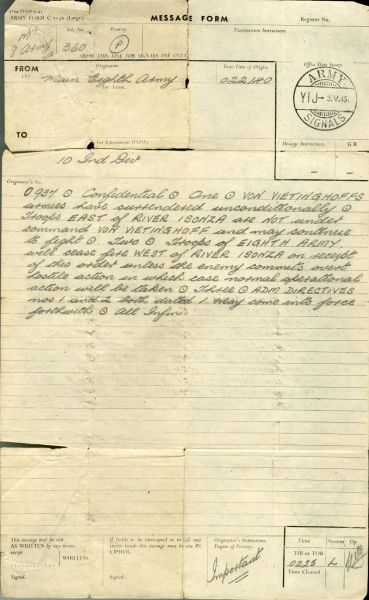 MESSAGE FORM
Register No.
ARMY FORM C 2136 (Large)
8 Army
Srl. No.
360
Priority
P
Transmission Instructions
ABOVE THIS LINE FOR SIGNALS USE ONLY
FROM
(A)
Originator
Main Eighth Army
Date-Time of Origin
022140
Office Date Stamp
ARMY
YIJ - 3.V.45.
SIGNALS
For Action
TO
For Information (INFO)
Message Instructions
GR
- -
10 Ind Div
Originator's No.
0937 ⊙ Confidential ⊙ One ⊙ VON VIETINGHOFFS
armies have surrendered unconditionally ⊙
Troops EAST of RIVER ISONZA are NOT under
command VON VIETINGHOFF and may continue
to fight ⊙ Two ⊙ Troops of EIGHTH ARMY
will cease fire WEST of RIVER ISONZA on receipt
of this order unless the enemy commits overt
hostile action in which case normal operational
action will be taken ⊙ Three ⊙ ADM DIRECTIVES
nos 1 and 2 both dated 1 May come into force
forthwith ⊙ All Infm
This message may be sent
AS WRITTEN by any means
except
WIRELESS.
Signed.
If liable to be intercepted or to fall
into enemy hands this message must be sent IN
CIPHER.
Signed.
Originator's Instructions
Degree of Priority
Important
Time
System
Op
THI or TOR
0225
L
Time Cleared